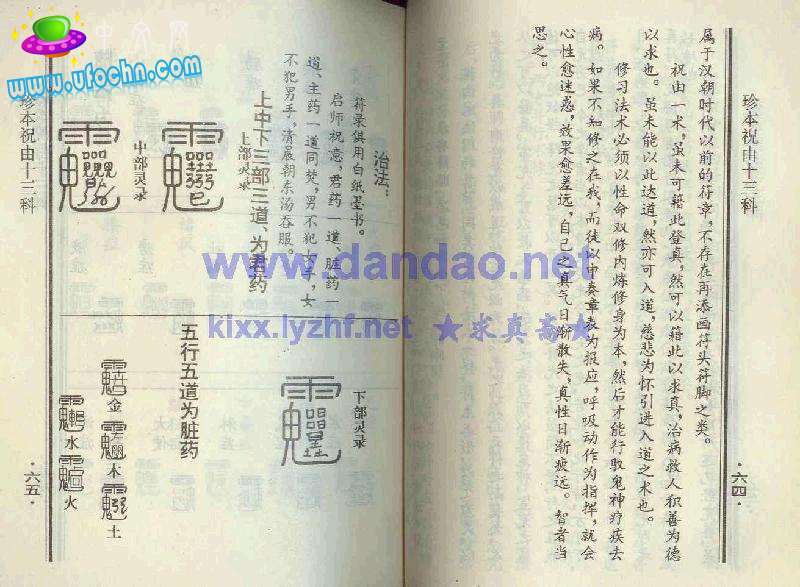 珍本祝由十三科
属于汉朝时代以前的符章，不存在再添画符头符脚之类。
祝由一术，虽未可籍此登真，然可以籍此以求真，治病救人积善为德
以求也。虽未能以此达道，然亦可入道，慈悲为怀引进入道之术也。
修习法术必须以性命双修内炼修身为本，然后才能行驭鬼神疗疾去
病。如果不知修之在我，而徒以申奏章表为报应，呼吸动作为指挥，就会
心性愈迷惑，效果愈差远，自己之真气日渐散失，真性日渐疲远。智者当
思之。
·六四·
治法：
符录俱用白纸墨书。
启师祝意，君药一道、脏药一
道、主药一道同焚，男不犯女手，女
不犯男手，清晨朝东汤吞服。
上中下三部三道、为君药
上部灵录
中部灵录
下部灵录
五行五道为脏药
金
木
土
水
火
珍本祝由十三科
·六五·
www.ufochn.com
www.dandao.net
kixx.lyzhf.net ★求真斋★